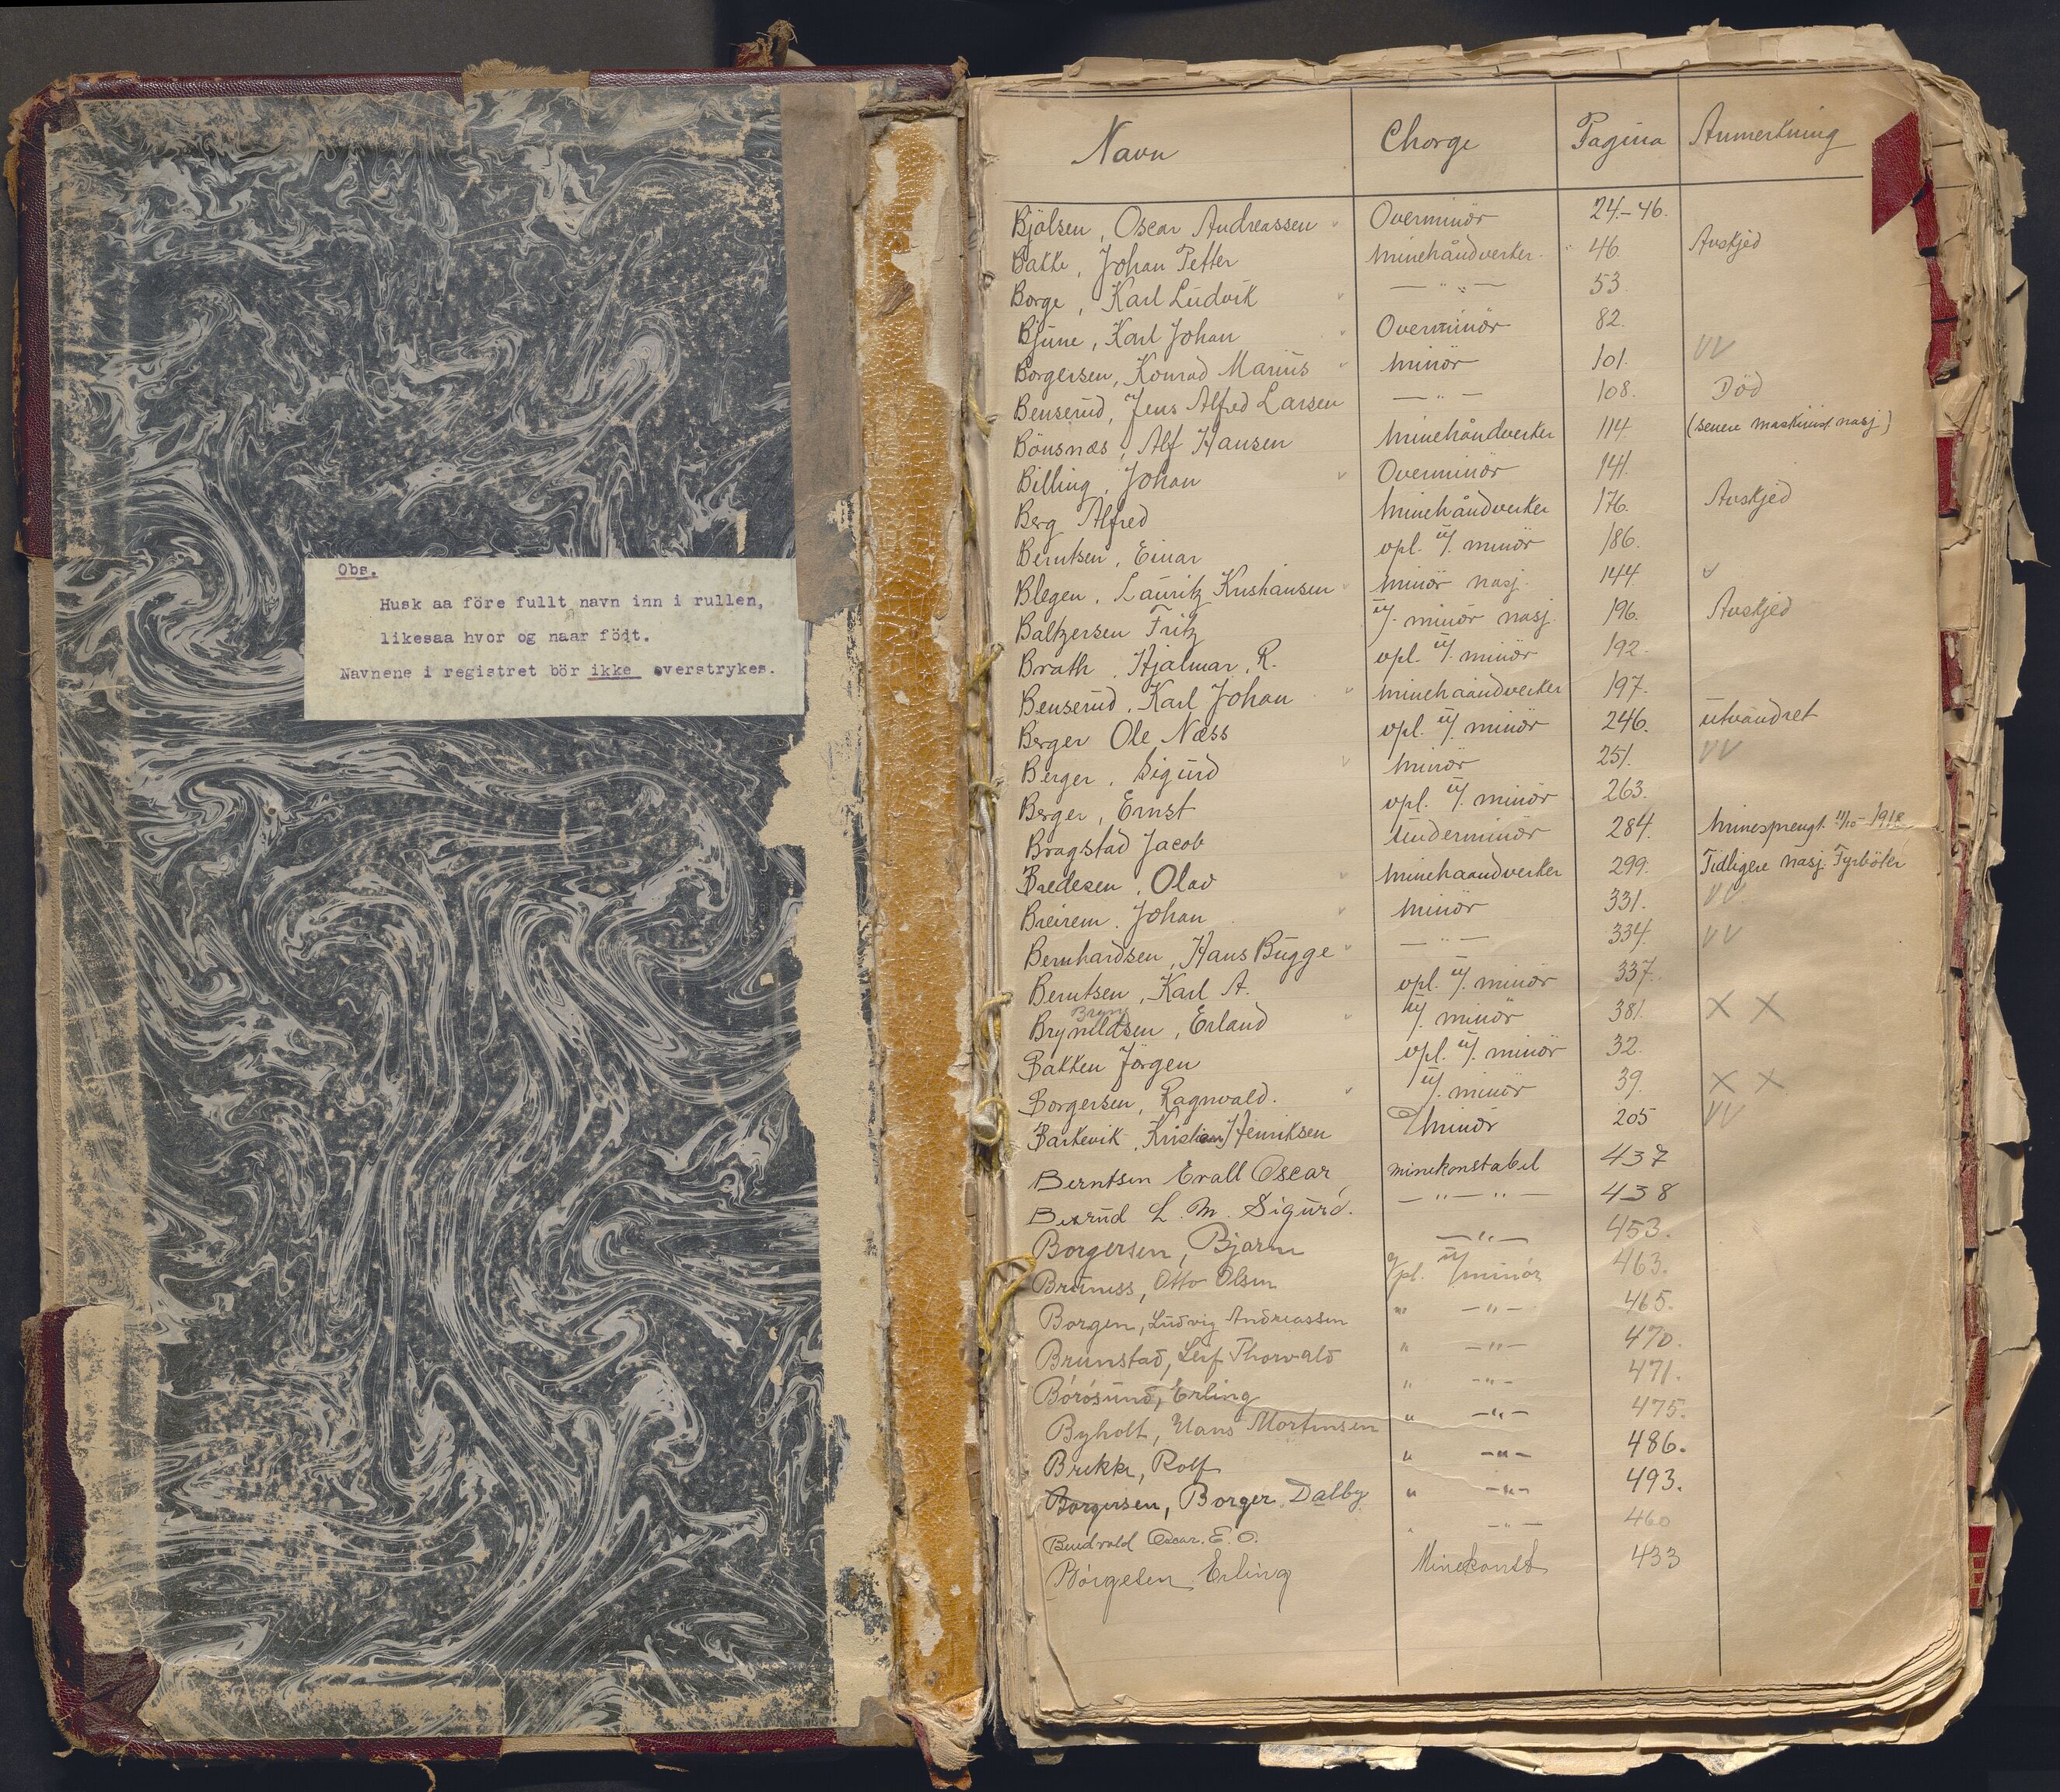 Obs.
Husk aa före fullt navn inn i rullen,
likesaa hvor og naar födt.
Navnene i registret bör ikke overstrykes.
Navn Charge Pagina Anmerkning
Bjölsen, Oscar Andreassen Overminör 24.-46.
Bakke, Johan Petter Minehåndverker. 46. Avskjed
Borge, Karl Ludvik — " — 53.
Bjune, Karl Johan Overminör 82.
Borgersen, Konrad Marius Minör 101. VV
Benserud, Jens Alfred Larsen — " — 108. Död
Bönsnæs, Alf Hansen Minehåndverker 114. (senere maskinist nasj)
Billing, Johan Overminör 141.
Berg Alfred Minehåndverker 176. Avskjed
Berntsen, Einar opl. u/. minör 186.
Blegen, Lauritz Kristiansen Minör nasj. 144. v
Baltzersen Fritz u/. minör nasj. 196. Avskjed
Brath, Hjalmar R. opl. u/. minör 192.
Benserud, Karl Johan Minehaandverker 197.
Berger Ole Næss opl. u/. minör 246. utvandret
Berger, Sigurd Minör 251. VV
Berger, Ernst opl. u/. minör 263.
Bragstad Jacob Underminör 284. Minesprengt 11/10-1918
Bredesen, Olav Minehaandverker 299. Tidligere nasj. Fyrböter
Breirem, Johan Minör 331. VV
Bernhardsen, Hans Bugge — " — 334. VV
Berntsen, Karl A. opl. u/. minör 337.
Bryn
Brynildsen, Erland u/. minör 381. X X
Bakken Jörgen opl. u/. minör 32.
Borgersen, Ragnvald. u/. minör 39. X X
Barkevik, Kristian Henriksen Minör 205 VV
Berntsen Erall Oscar minekonstabel 437
L. M. Sigurd. — " — " — 438
Borgersen, Bjarne — " — 453.
Bruness, Otto Olsen Opl. u/minör 463.
Borgen, Ludvig Andreassen " — " — 465.
Brunstad, Leif Thorvald " — " — 470.
Börösund, Erling " — " — 471.
Byholt, Hans Mortensen " — " — 475.
Brekke, Rolf " — " — 486.
Borgersen, Borger Dalby " — " — 493.
Oscar. E. O. " — " — 460
Börgesen Erling Minekonst 433